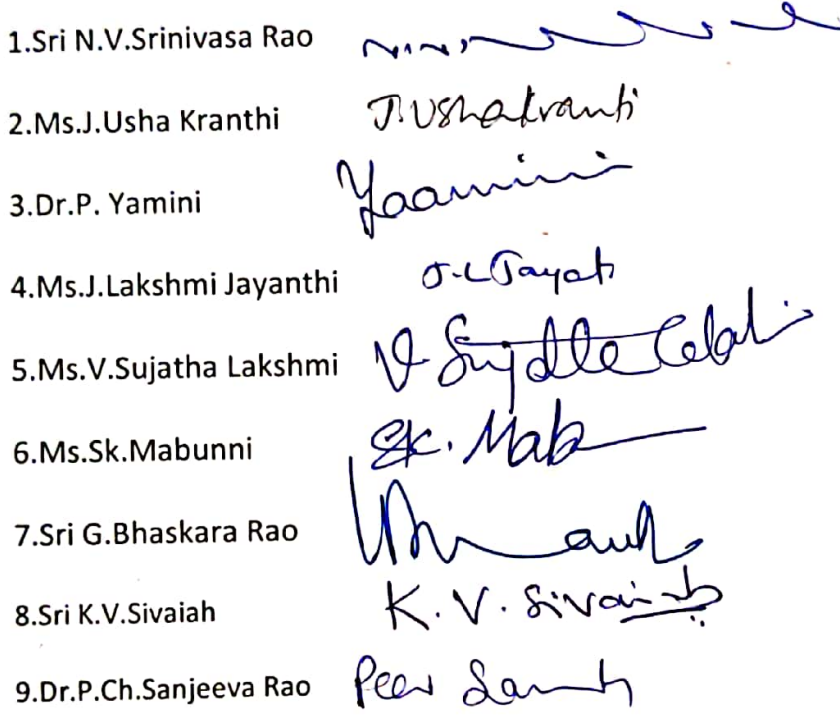 1.Sri N.V.Srinivasa Rao
2.Ms.J.Usha Kranthi J.Ushakranti
3.Dr.P. Yamini Yaamini
4.Ms.J.Lakshmi Jayanthi J.L Jayati
5.Ms.V.Sujatha Lakshmi V Sujatha
6.Ms.Sk.Mabunni Sk. Mab
7.Sri G.Bhaskara Rao
8.Sri K.V.Sivaiah K.V. Sivaiah
9.Dr.P.Ch.Sanjeeva Rao